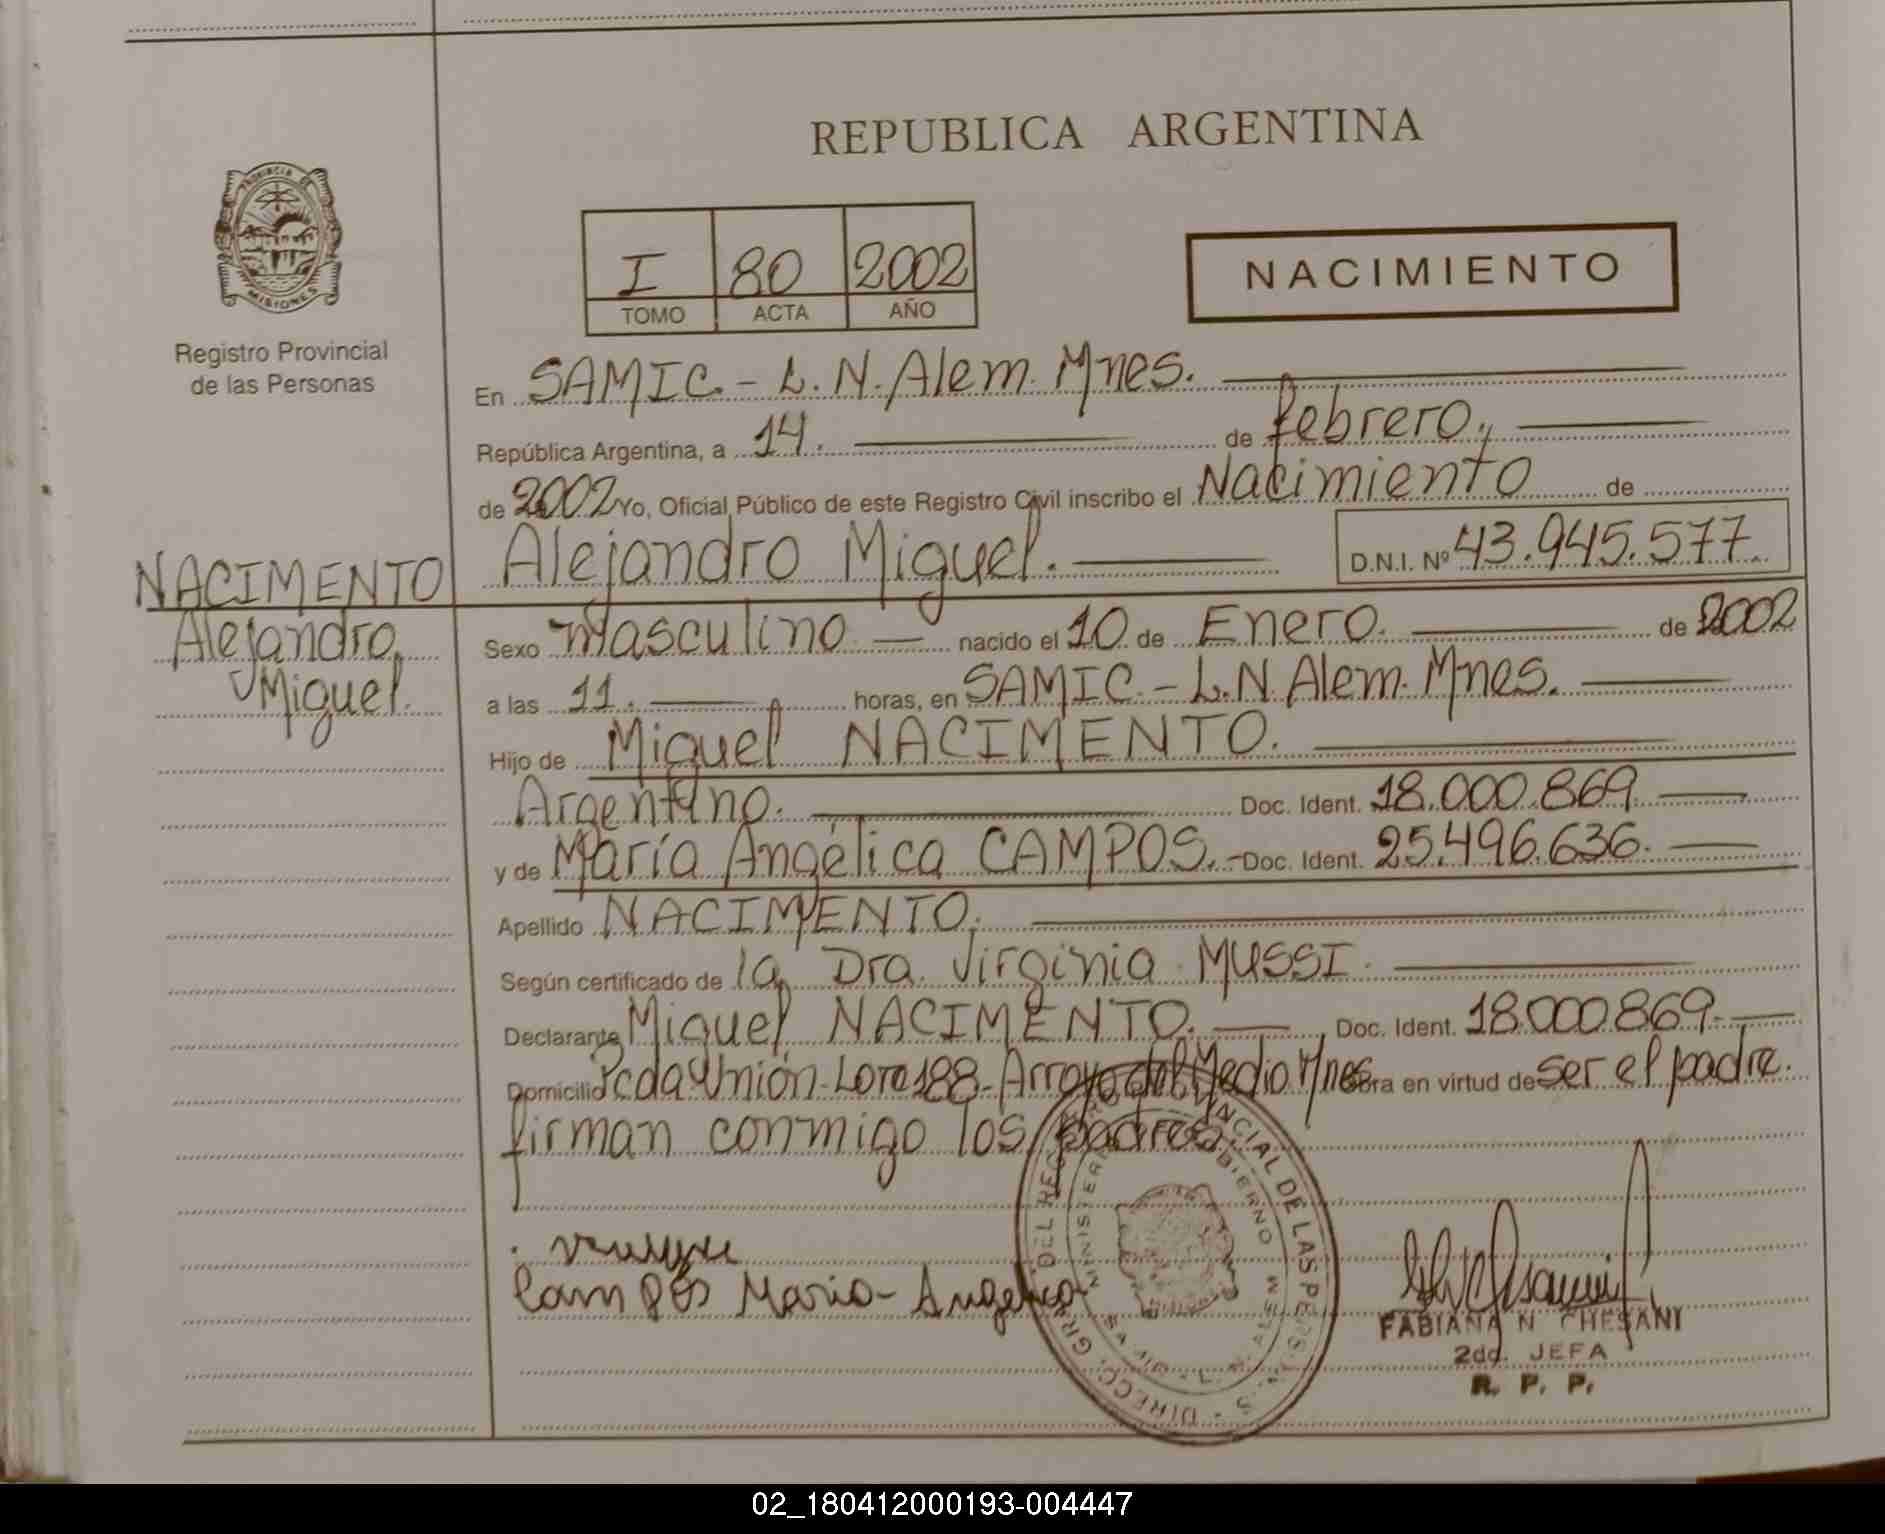 REPUBLICA ARGENTINA
PROVINCIA DE
MISIONES
Registro Provincial
de las Personas
I 80 2002
TOMO ACTA AÑO
NACIMIENTO
En SAMIC.- L. N. Alem. Mnes.
República Argentina, a 14. de febrero,
de 2002 Yo, Oficial Público de este Registro Civil inscribo el Nacimiento de
Alejandro Miguel. D.N.I. Nº 43.945.577
NACIMENTO
Alejandro
Miguel.
Sexo masculino nacido el 10 de Enero. de 2002
a las 11. horas, en SAMIC.- L.N. Alem. Mnes.
Hijo de Miguel NACIMENTO.
Argentino. Doc. Ident. 18.000.869
y de María Angélica CAMPOS.- Doc. Ident. 25.496.636.
Apellido NACIMENTO.
Según certificado de la Dra. Virginia MUSSI.
Declarante Miguel NACIMENTO. Doc. Ident. 18.000.869-
Domicilio Pcda Unión- Lote 188- Arroyo del Medio Mnes obra en virtud de ser el padre.
firman conmigo los padres.
Campos Maria Angelica
FABIANA N CHESANI
2da. JEFA
R. P. P.
02_180412000193-004447